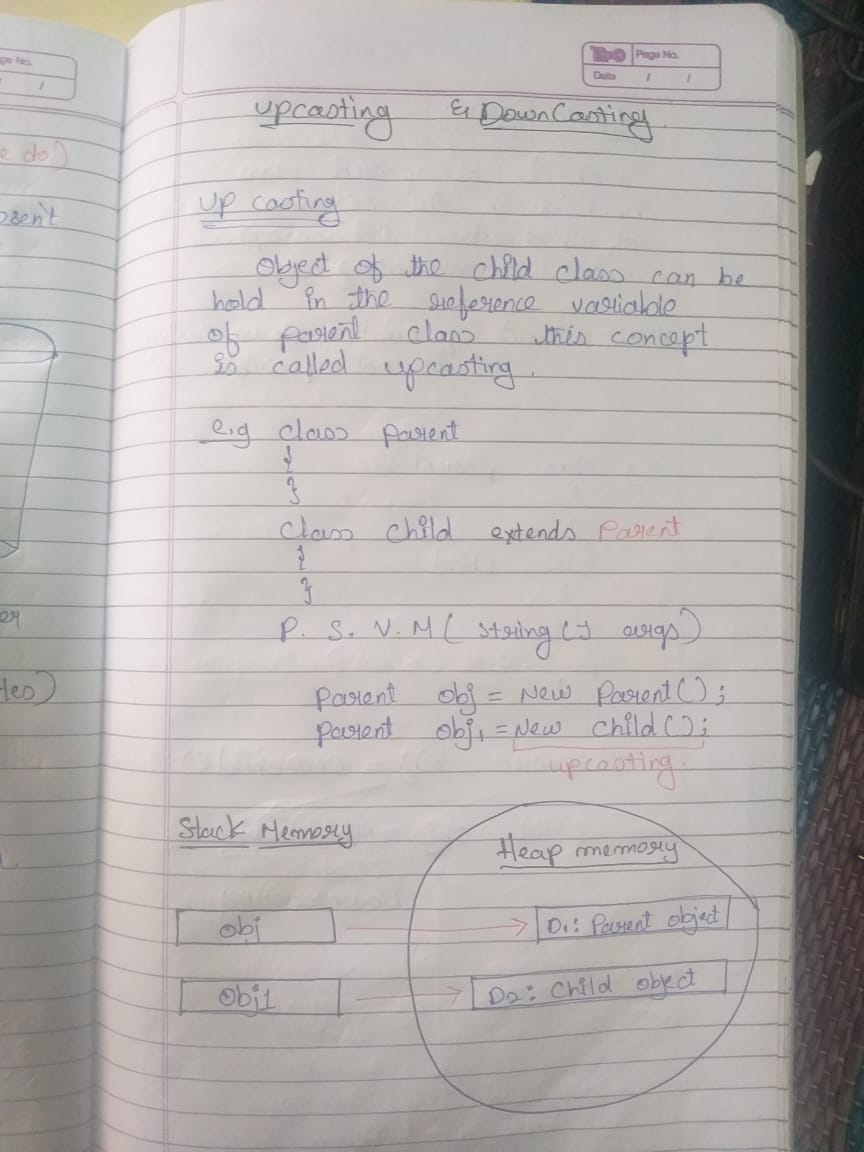 ge No.
/ /
e do)
osent
er
tes)
Page No.
Date / /
upcasting & DownCasting.
Up casting
Object of the child class can be
hold in the reference variable
of parent class this concept
is called upcasting.
e.g class parent
{
}
Class child extends Parent
{
}
P. S. V. M ( string [] args)
Parent obj = New Parent();
Parent obj1 = New Child();
upcasting.
Stack Memory
Heap memory
obj
D1: Parent object
Obj1
D2: Child object